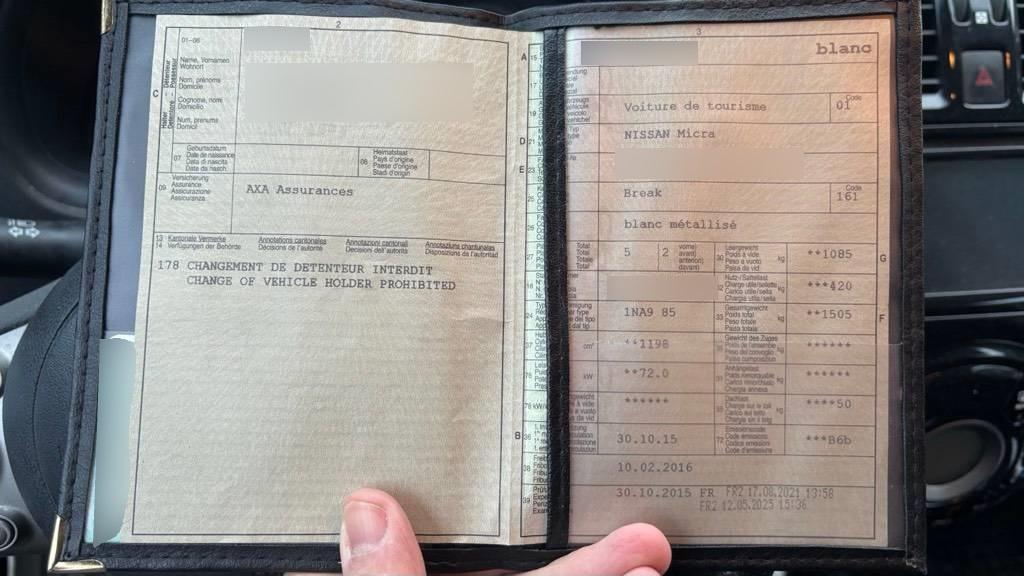 2
01-06
Name, Vornamen
Wohnort
Nom, prénoms
Domicile
Cognome, nomi
Domicilio
Num, prenums
Domicil
C
Halter – Détenteur
Detentore – Possessur
07
Geburtsdatum
Date de naissance
Data di nascita
Data da nasch.
08
Heimatstaat
Pays d'origine
Paese d'origine
Stadi d'origin
09
Versicherung
Assurance
Assicurazione
Assicuranza
AXA Assurances
13 Kantonale Vermerke
14 Verfügungen der Behörde
Annotations cantonales
Décisions de l'autorité
Annotazioni cantonali
Decisioni dell'autorità
Annotaziuns chantunalas
Disposiziuns da l'autoritad
178 CHANGEMENT DE DETENTEUR INTERDIT
CHANGE OF VEHICLE HOLDER PROHIBITED
3
A 15
blanc
19
Voiture de tourisme
Code
01
D 21
NISSAN Micra
E 23
25
Break
Code
161
26
blanc métallisé
27
Total
Total
Totale
Total
5
2
vorne)
avant)
anteriori)
davant)
30
Leergewicht
Poids à vide
Peso a vuoto
Paisa da vid
kg
**1085
G
18
32
Nutz-/Sattellast
Charge utile/sellette
Carico utile/sella
Chargia utila/sella
kg
***420
24
1NA9 85
33
Gesamtgewicht
Poids total
Peso totale
Paisa totala
kg
**1505
F
37
cm³
**1198
Gewicht des Zuges
Poids de l'ensemble
Peso del convoglio
Paisa cumposiziun
kg
******
76
kW
**72.0
31
Anhängelast
Poids remorquable
Carico rimorchiato
Chargia annexa
kg
******
78
******
55
Dachlast
Charge sur le toit
Carico sul tetto
Chargia sin il tetg
kg
****50
B 36
30.10.15
72
Emissionscode
Code émissions
Codice emissioni
Code d'emissiuns
***B6b
38
10.02.2016
39
30.10.2015 FR FR2 17.08.2021 13:58
FR2 12.05.2025 15:36